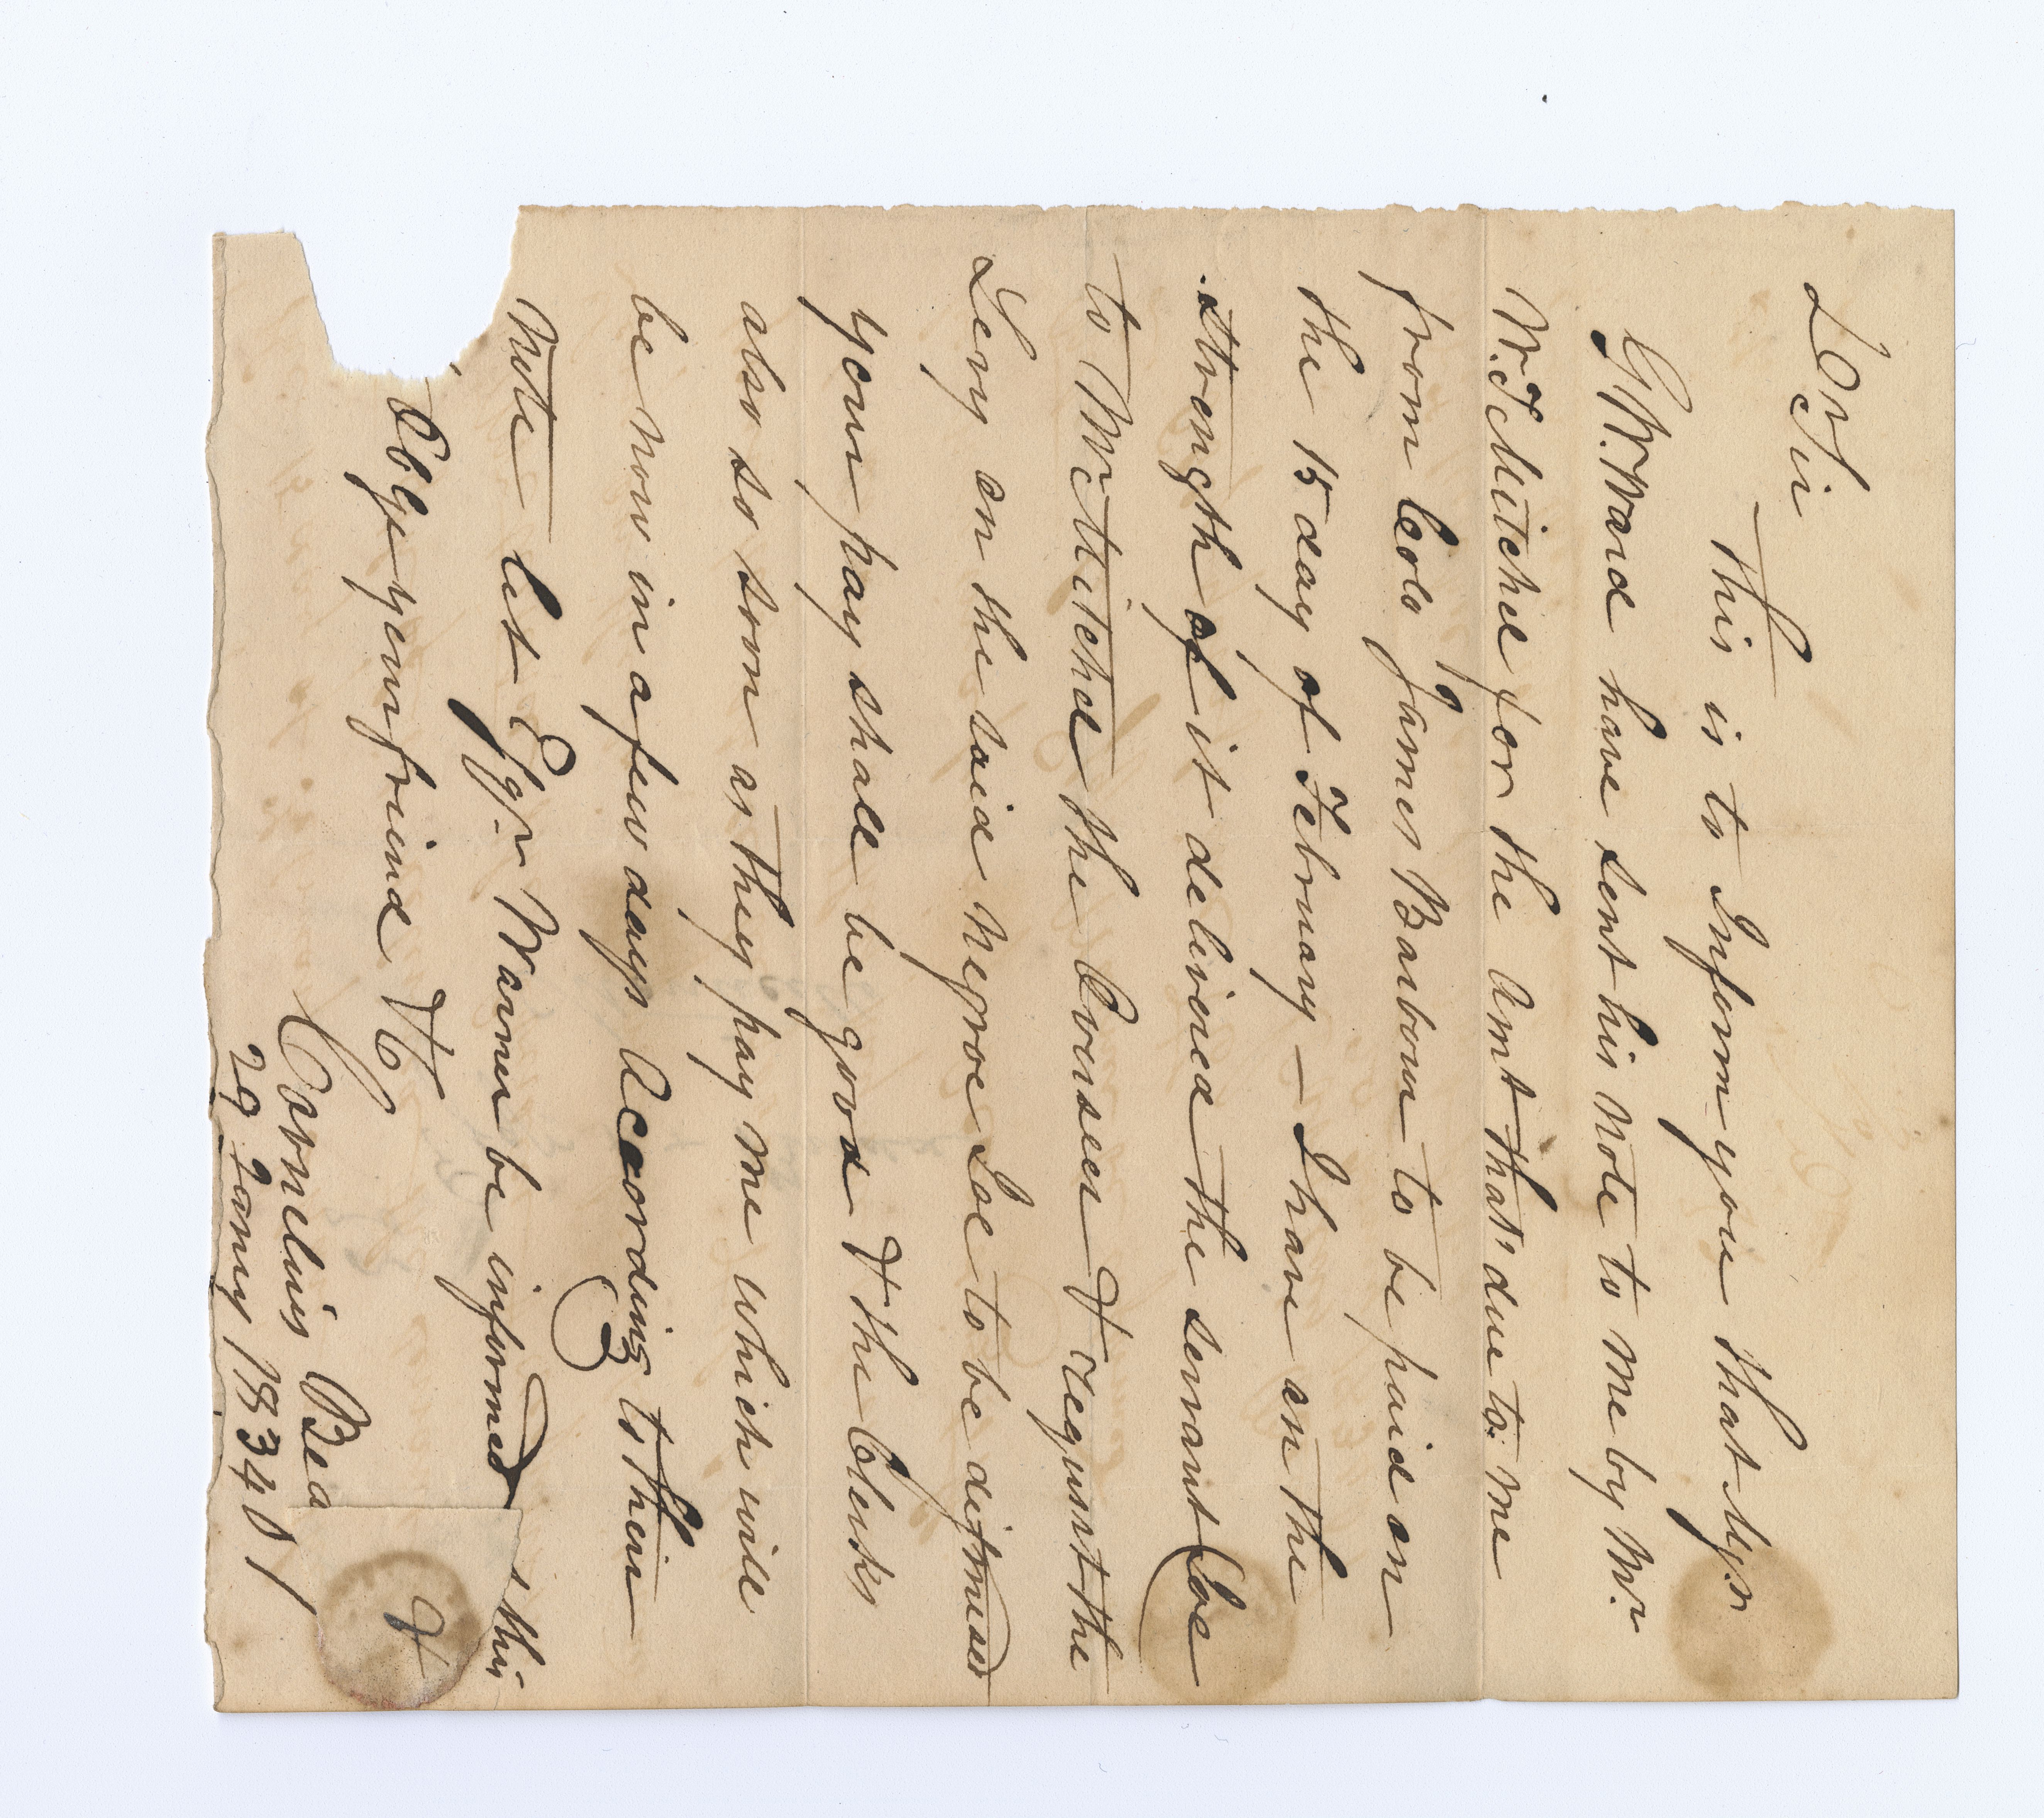 D Sir
This is to Inform you that Mr
G W. Ward have sent his note to me by Mr
W. F Mitchel for the Amt that's due to me
from Colo James Barbour to be paid on
the 15 day of February – I have on the
strength of it delivered the servant Joe
to Mr Mitchel the Overseer & request the
Levy on the said Negroe Joe to be dismised
your pay shall be good & the Clerks
also so soon as they pay me which will
be now in a few days Acording to their
Note let Warner be informed this
Oblge your friend &C
Cornelius Bea
29 Jany 1834